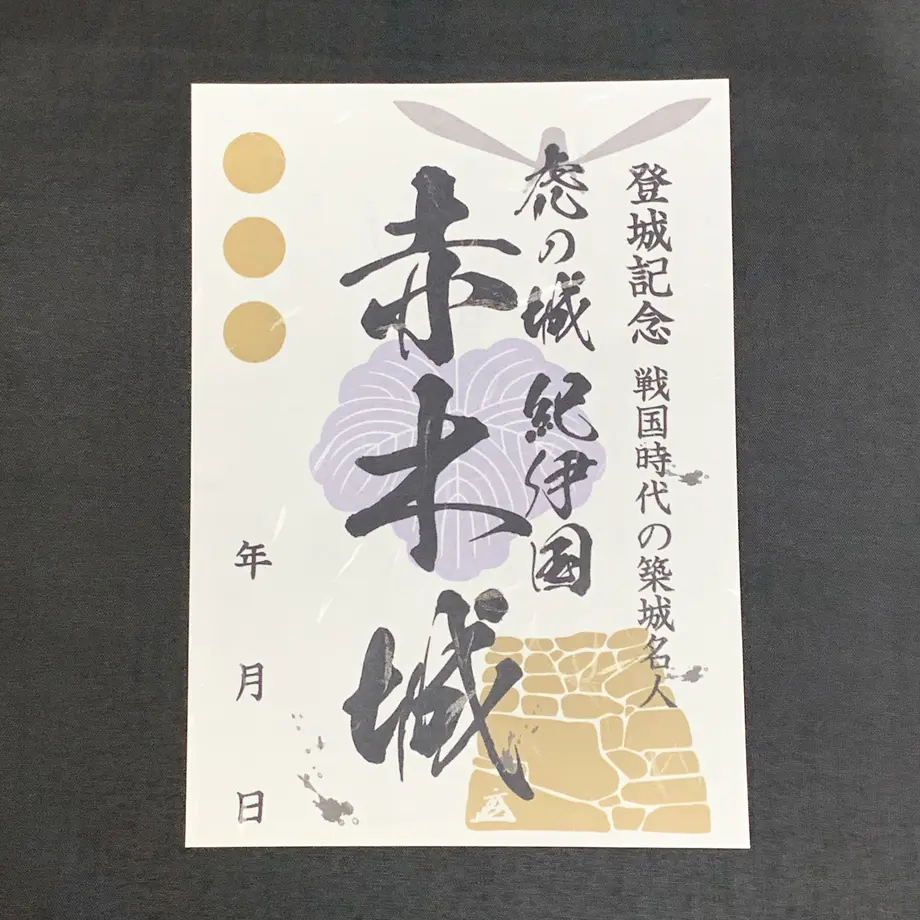 登城記念 戦国時代の築城名人
虎の城 紀伊国
赤木城
年 月 日